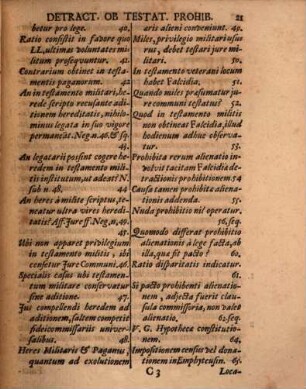 DETRACT. OB TESTAT. PROHIB. 21
betur pro lege. 42.
Ratio consistit in favore quo
LL. ultimas voluntates mi-
litum prosequuntur. 41.
Contrarium obtinet in testa-
mentis paganorum. 42.
An in testamento militari, he-
rede scripto recusante adi-
tionem hereditatis, nihilo-
minus legata in suo vigore
permaneant. Neg. n. 46. & sq.
43.
An legatarii possint cogere he-
redem in testamento mili-
tis institutum, ut adeat? N.
sub n. 48. 44
An heres à milite scriptus, te-
neatur ultra vires heredi-
tatis? Aff. Jure ff. Neg. n.
45.
Ubi non apparet privilegium
in testamento militis, ibi
censetur Jure Communi. 46.
Speciales casus ubi testamen-
tum militare conservatur
sine aditione. 47.
Jus compellendi heredem ad
aditionem, saltem competit
fideicommissariis univer-
salibus. 48.
Heres Militaris & Paganus,
quantum ad exolutionem
aris alieni conveniunt. 49.
Miles, privilegio militari usu-
rus, debet testari jure mi-
litari. 50.
In testamento veterani locum
habet Falcidia. 51.
Quando miles præsumatur ju-
re communi testatus? 52.
Quod in testamento militis
non obtineat Falcidia, illud
hodienum adhuc observa-
tur. 53.
Prohibita rerum alienatio in-
volvit tacitam Falcidiæ de-
tractionis prohibitionem 54
Causa tamen prohibitæ aliena-
tionis addenda. 55.
Nuda prohibitio nil operatur.
56. seq.
Quomodo differat prohibitio
alienationis à lege facta, ab
illa, quæ sit pacto? 60.
Ratio disparitatis indicatur.
61.
Si pacto prohibenti alienatio-
nem, adjecta fuerit clau-
sula commissoria, non valet
alienatio. 62. seq.
V. G. Hypothecæ constitutio-
nem. 64.
Impositionem census vel dena-
tionem in Emphyteusin. 65.
C 3 Loca-